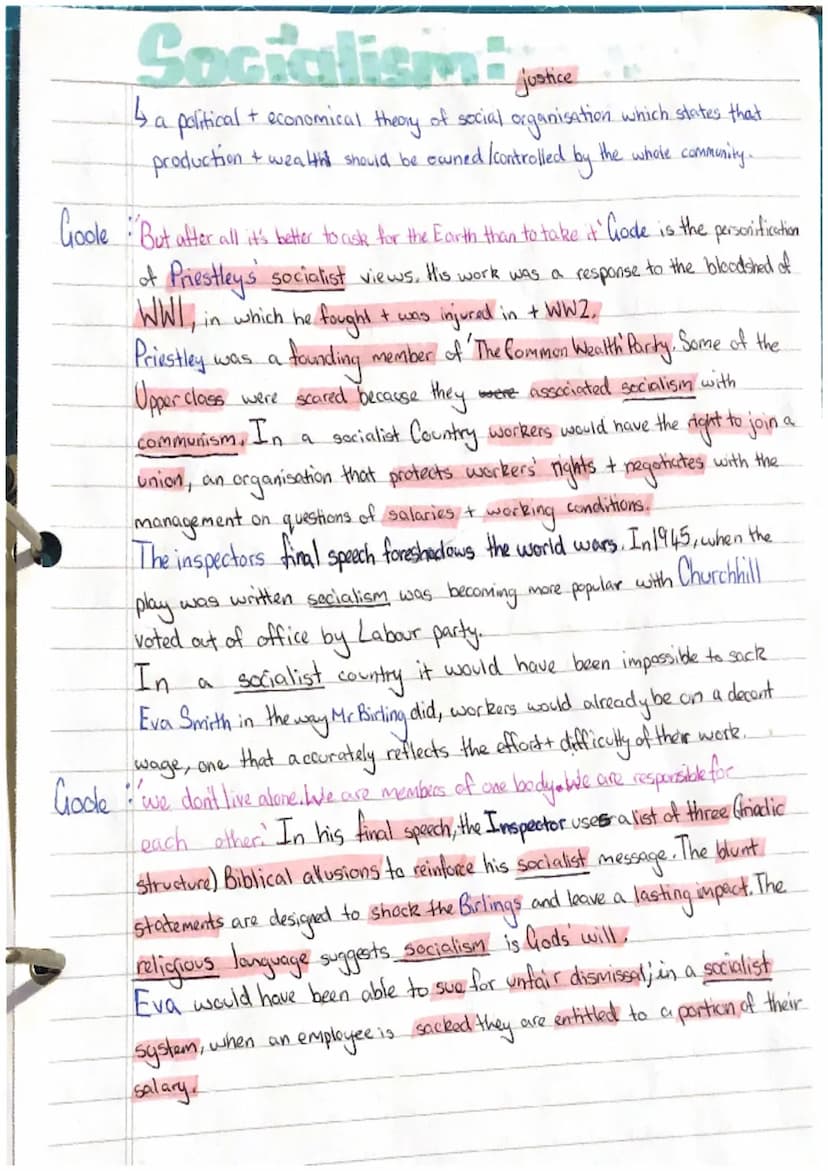 Socialism:
justice
↳ a political + economical theory of social organisation which states that
production + wealth should be owned/controlled by the whole community.
Goole : 'But after all it's better to ask for the Earth than to take it' Goole is the personification
of Priestley's socialist views. His work was a response to the bloodshed of
WW1, in which he fought + was injured in + WW2.
Priestley was a founding member of 'The Common Wealth' Party. Some of the
Upper class were scared because they were associated socialism with
communism. In a socialist Country workers would have the right to join a
union, an organisation that protects workers' rights + negotiates with the
management on questions of salaries + working conditions.
The inspectors final speech foreshadows the world wars. In 1945, when the
play was written socialism was becoming more popular with Churchhill
voted out of office by Labour party.
In a socialist country it would have been impossible to sack
Eva Smith in the way Mr Birling did, workers would already be on a decent
wage, one that accurately reflects the effort + difficulty of their work.
Goole : 'we don't live alone. We are members of one body. We are responsible for
each other.' In his final speech, the Inspector uses a list of three (triadic
structure) Biblical allusions to reinforce his socialist message. The blunt
statements are designed to shock the Birlings and leave a lasting impact. The
religious language suggests socialism is Gods' will.
Eva would have been able to sue for unfair dismissal; in a socialist
system, when an employee is sacked they are entitled to a portion of their
salary.